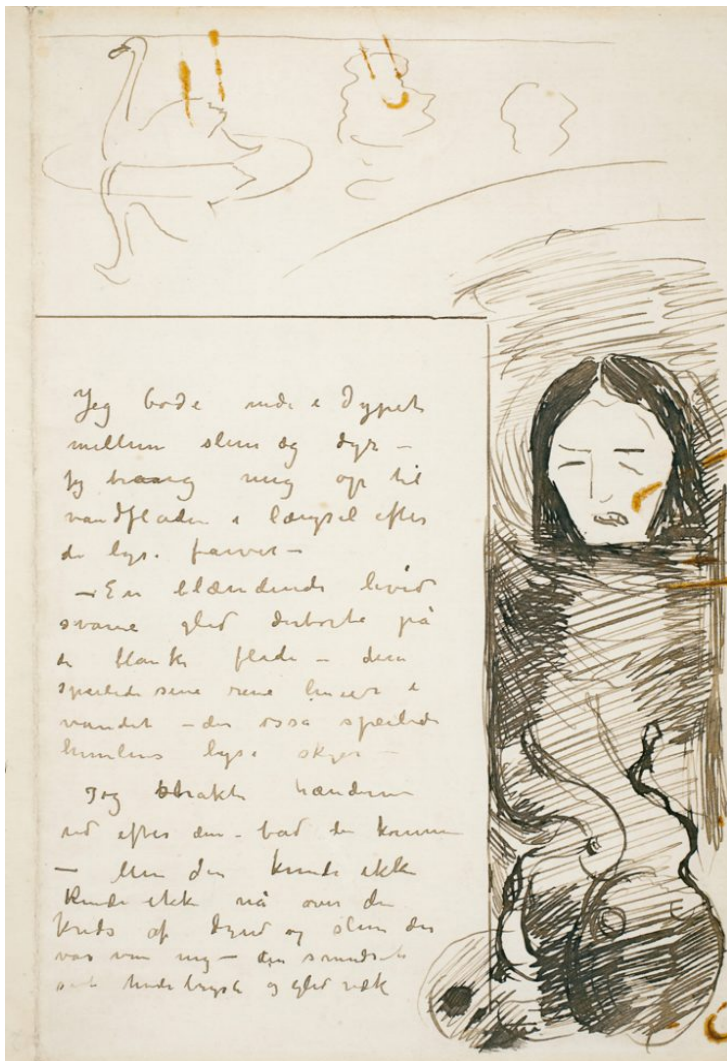 Jeg bode nede i Dypet
mellem slim og dyr –
Jeg trang mig op til
vandfladen i længsel efter
de lyse farver –
– En blændende hvid
svane gled derborte på
den blanke flade – den
speilede sine rene linier i
vandet – der osså speilede
himlens lyse skyer –
Jeg strakte hænderne
ud efter den – bad den komme
– Men den kunde ikke
kunde ikke nå over den
kreds af dynd og slim der
var om mig – den smudsede
sit hvide bryst og gled væk